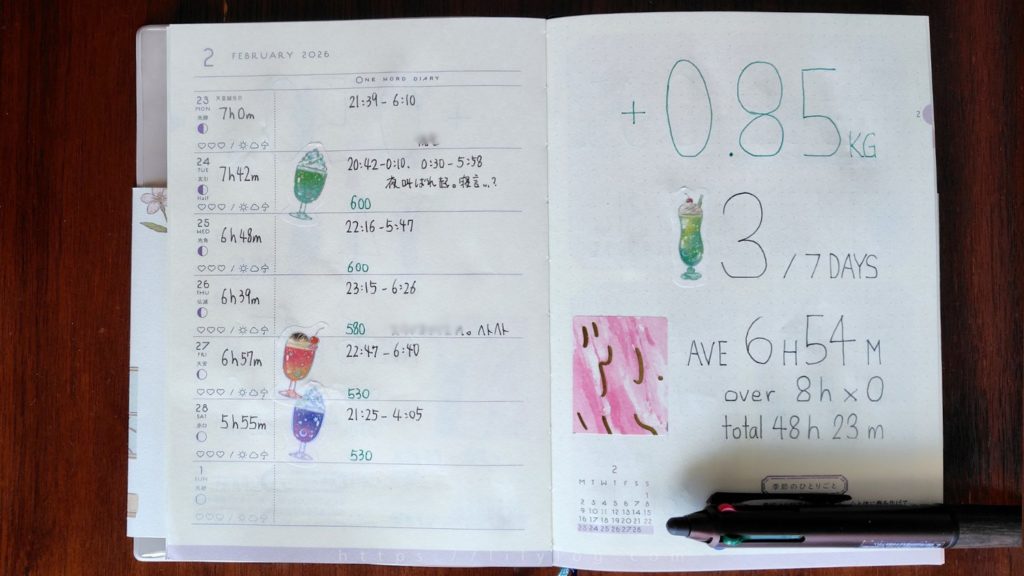 2 FEBRUARY 2026
ONE WORD DIARY
23 MON 7h0m 21:39 - 6:10
24 TUE 7h42m 20:42-0:10、 0:30 - 5:58
Half 夜叫ばれ起。寝言…?
600
25 WED 6h48m 22:16 - 5:47
600
26 THU 仏滅 6h39m 23:15 - 6:26
580 。ヘトヘト
27 FRI 大安 6h57m 22:47 - 6:40
530
28 SAT 赤口 5h55m 21:25 - 4:05
530
1 SUN
+0.85KG
2
3 / 7 DAYS
AVE 6H54M
over 8h x 0
total 48h 23m
2
M T W T F S S
1
2 3 4 5 6 7 8
9 10 11 12 13 14 15
16 17 18 19 20 21 22
23 24 25 26 27 28
季節のひとりごと